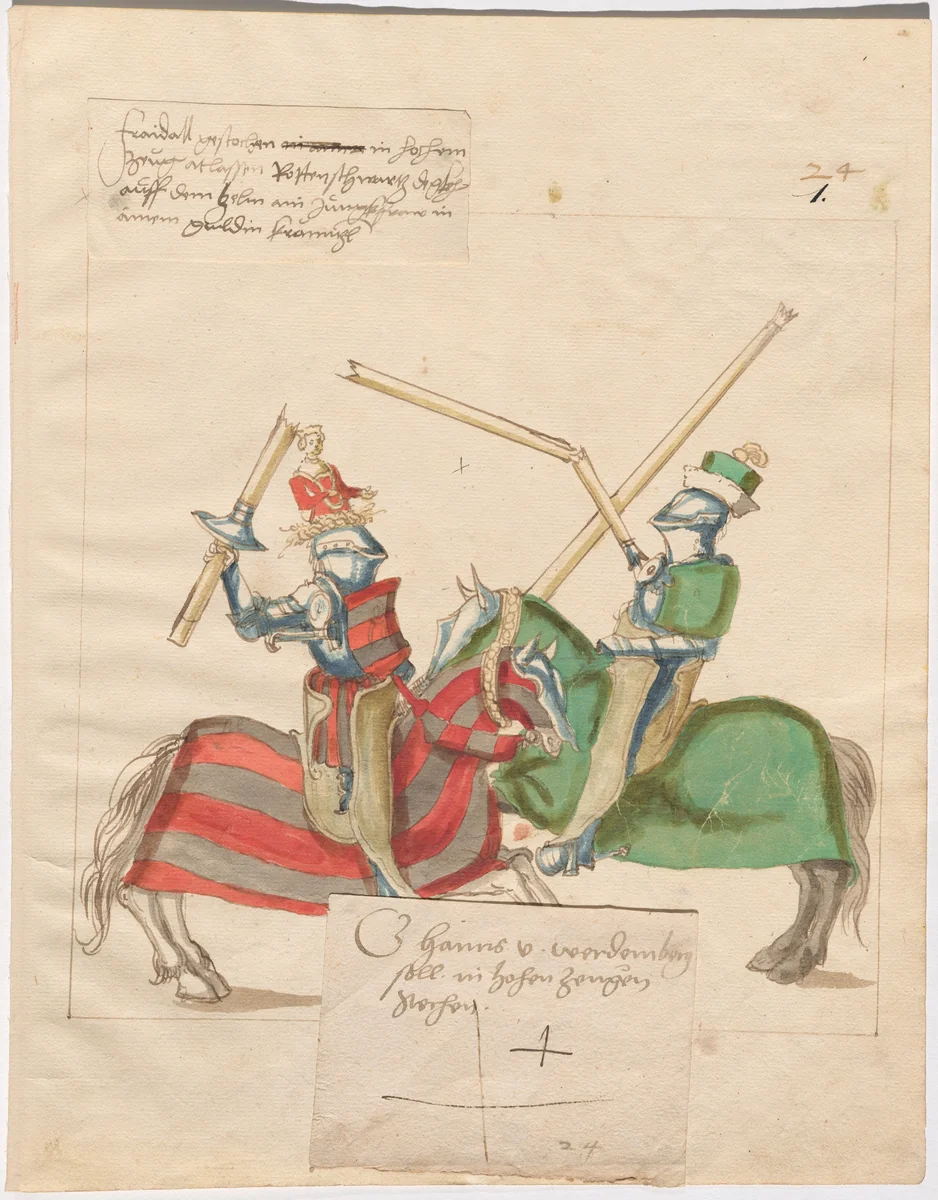 fraidall gestochen in hohem
Zeug atlassen Rottenschwartz
auff dem helm ain Junckhfraw in
ainem Guldin
24
1.
G hanns v. werdemberg
soll in hohen Zeugen
stechen.
24